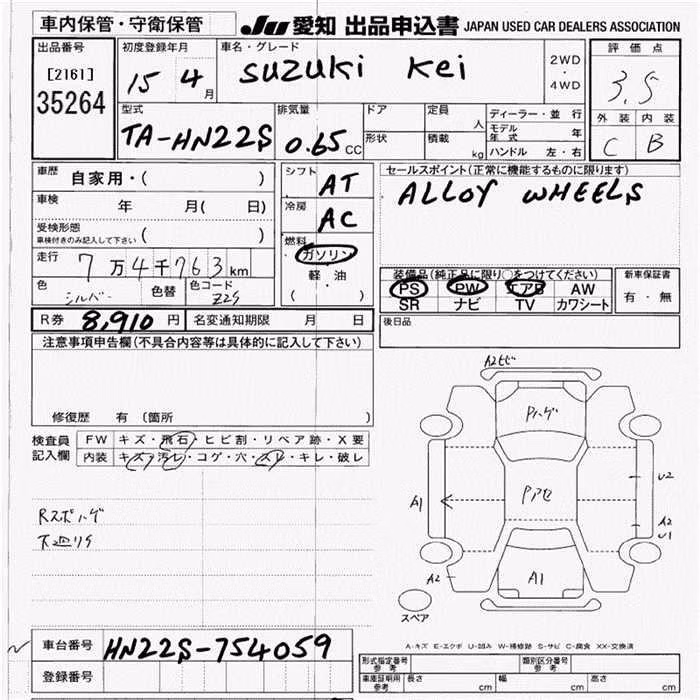 車内保管・守衛保管 JU 愛知 出品申込書 JAPAN USED CAR DEALERS ASSOCIATION
出品番号 初度登録年月 車名・グレード 2WD・4WD 評価点
[2161] 35264 15 4月 SUZUKI Kei 3.5
型式 排気量 ドア 定員 人 ディーラー・並行 外装 内装
TA-HN22S 0.65CC 形状 積載 kg モデル年式 年 C B
ハンドル 左・右
車歴 自家用・( ) シフト AT セールスポイント(正常に機能するものに限ります)
車検 年 月( 日) 冷房 AC ALLOY WHEELS
受検形態 車検付きのみ記入して下さい ( ) 燃料 ガソリン
走行 7万4千763km 軽油 装備品(純正品に限り○をつけてください) 新車保証書
色 シルバー 色替 色コード Z2S ( ) PS PW エアB AW 有・無
SR ナビ TV カワシート
R券 8,910円 名変通知期限 月 日 後日品
注意事項申告欄(不具合内容等は具体的に記入して下さい)
修復歴 有 〔箇所 〕
検査員記入欄 FW キズ・飛石・ヒビ割・リペア跡・X要
内装 キズ・汚レ・コゲ・穴・スレ・キレ・破レ
Rスポハゲ
下廻りサ
A2ヒビ
Pハゲ
A1 Pアセ U2
A2
U1
A2 A1
スペア
A-キズ E-エクボ U-凹み W-補修跡 S-サビ C-腐食 XX-交換済
車台番号 HN22S-754059
登録番号
形式指定番号 参考 類別区分番号 参考
車庫証明用 参考 長さ cm 幅 cm 高さ cm